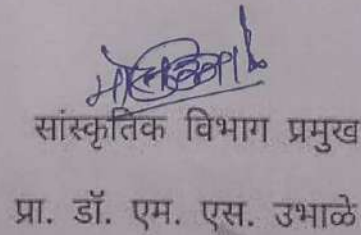 सांस्कृतिक विभाग प्रमुख
प्रा. डॉ. एम. एस. उभाळे